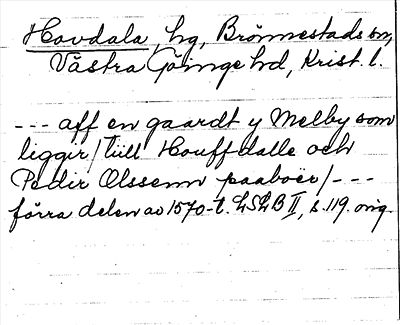 Hovdala, hg, Brönnestads sn,
Västra Göinge hd, Krist. l.
--- aff en gaardt y Melby som
liggir / tiill Houffdalle och
Pedir Olssenn paaboer / ---
förra delen av 1570-t. LSLB II, s. 119. orig.